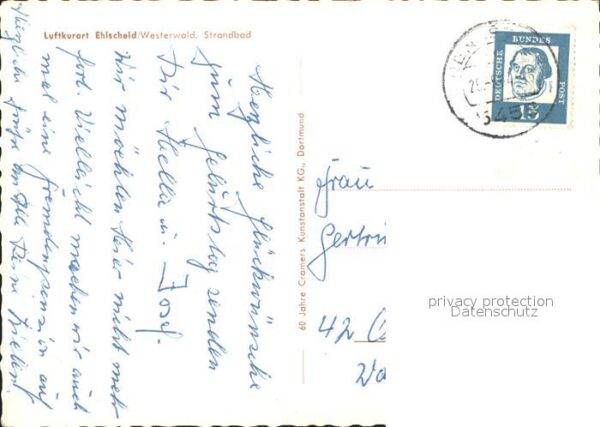 Luftkurort Ehlscheid/Westerwald, Strandbad
Herzliche Glückwünsche
zum Geburtstag senden
Dir Stella u. Josef.
Wir möchten hier nicht mehr
fort. Vielleicht machen wir auch
mal eine Fremdenpension auf
Herzliche Grüße an Alle
60 Jahre Cramers Kunstanstalt KG., Dortmund
Frau
42
DEUTSCHE BUNDES POST
15
545
privacy protection
Datenschutz